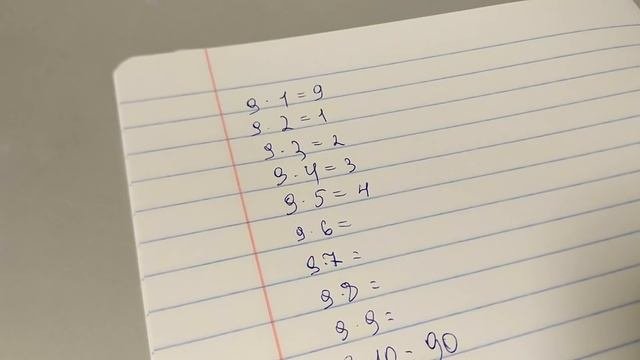 9·1=9
9·2=1
9·3=2
9·4=3
9·5=4
9·6=
9·7=
9·8=
9·9=
9·10=90